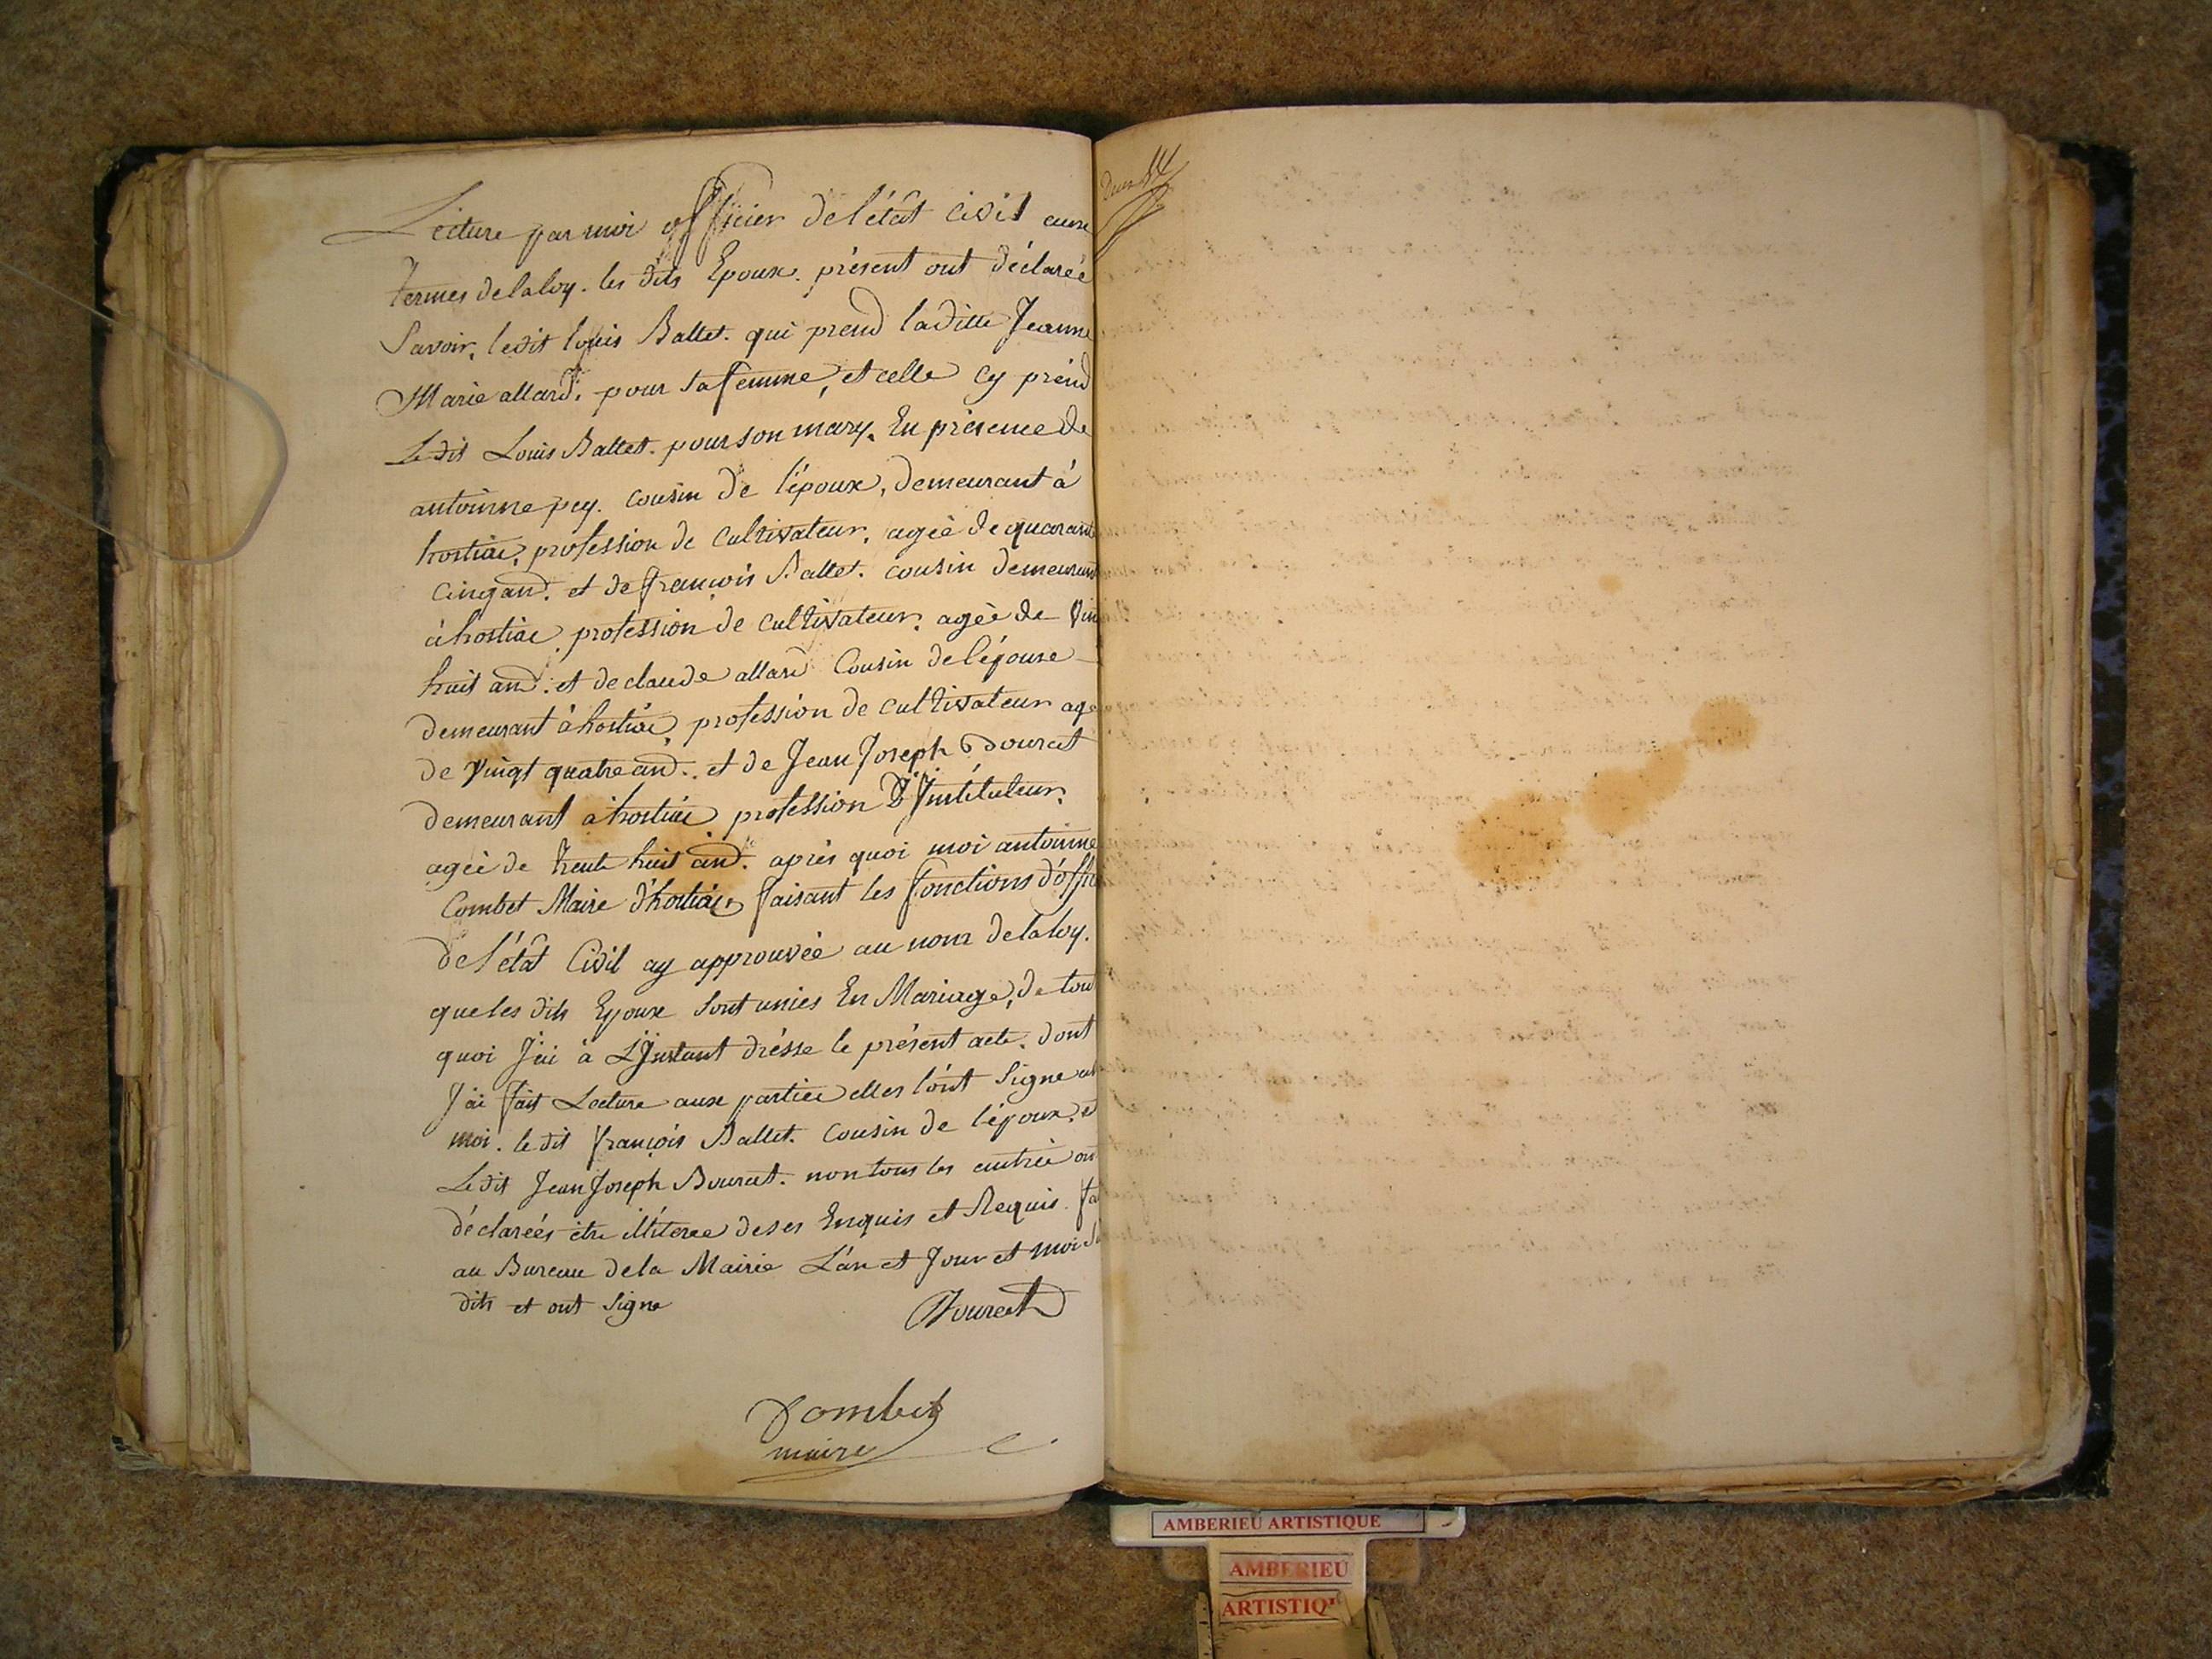 Lecture par moi officier de l'état Civil aux
termes de la loy. les dits Epoux. présent ont déclareé
Savoir, ledit loüis Ballet. qui prend laditte Jeanne
Marie allard. pour sa femme, et celle cy prend
Ledit Louis Ballet. pour son mary. En présence de
antoinne pey. cousin de l'époux, demeurant à
hostiae, profession de cultivateur. ageé de quarante
Cinq and. et de françois Ballet. cousin demeurant
à hostiae profession de cultivateur. ageé de
huit and. et de claude allard Cousin de l'épouse
demeurant à hostiae, profession de cultivateur age
de vingt quatre and. et de Jean Joseph Bourcet
demeurant à hostiae profession D'Jnstituteur.
ageé de trente huit and. aprés quoi moi antoinne
Combet Maire d'hostiae faisant les fonctions d'offi
de l'état Civil ay approuveé au nom de la loy.
que les dits Epoux sont unies En Mariage, de tout
quoi J'ai à L'Jnstant drésse le présent acte. dont
J'ai fait Lecture aux partiee elles l'ont Signe
moi. le dit françois Ballet. Cousin de l'époux, et
Ledit Jean Joseph Bourcet. non tous les autreé ont
déclareés etre illiteree de ses Enquis et Requis. fa
au Bureau de la Mairie L'an et Jour et moi
dits et ont Signe
Bourcet
Combet
maire
AMBERIEU ARTISTIQUE
AMBERIEU
ARTISTIQ